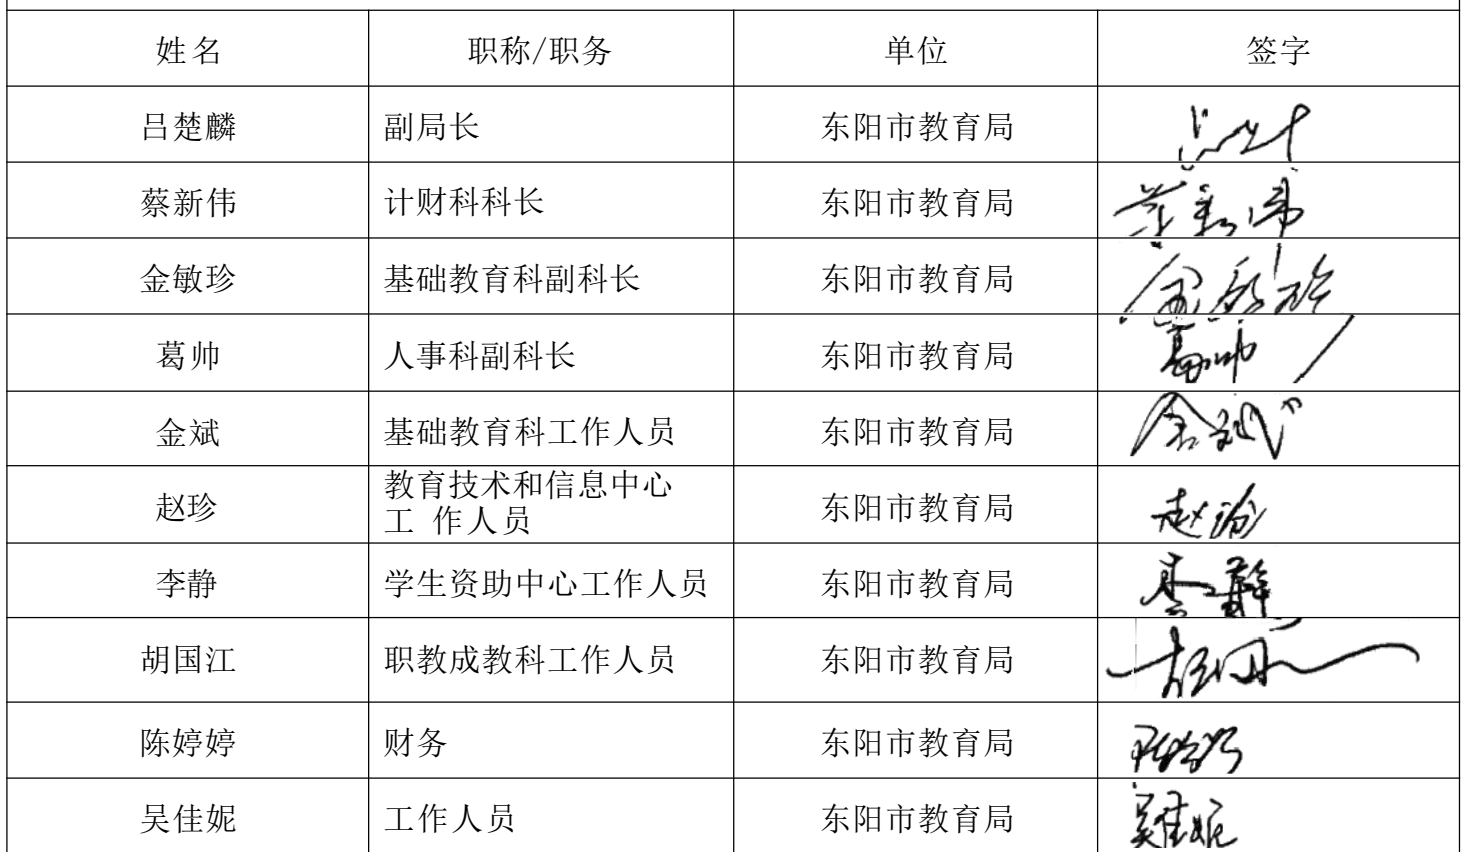 姓名 职称/职务 单位 签字
吕楚麟 副局长 东阳市教育局
蔡新伟 计财科科长 东阳市教育局 蔡新伟
金敏珍 基础教育科副科长 东阳市教育局 金敏珍
葛帅 人事科副科长 东阳市教育局 葛帅
金斌 基础教育科工作人员 东阳市教育局 金斌
教育技术和信息中心
赵珍 工 作人员 东阳市教育局 赵珍
李静 学生资助中心工作人员 东阳市教育局 李静
胡国江 职教成教科工作人员 东阳市教育局
陈婷婷 财务 东阳市教育局 陈婷婷
吴佳妮 工作人员 东阳市教育局 吴佳妮